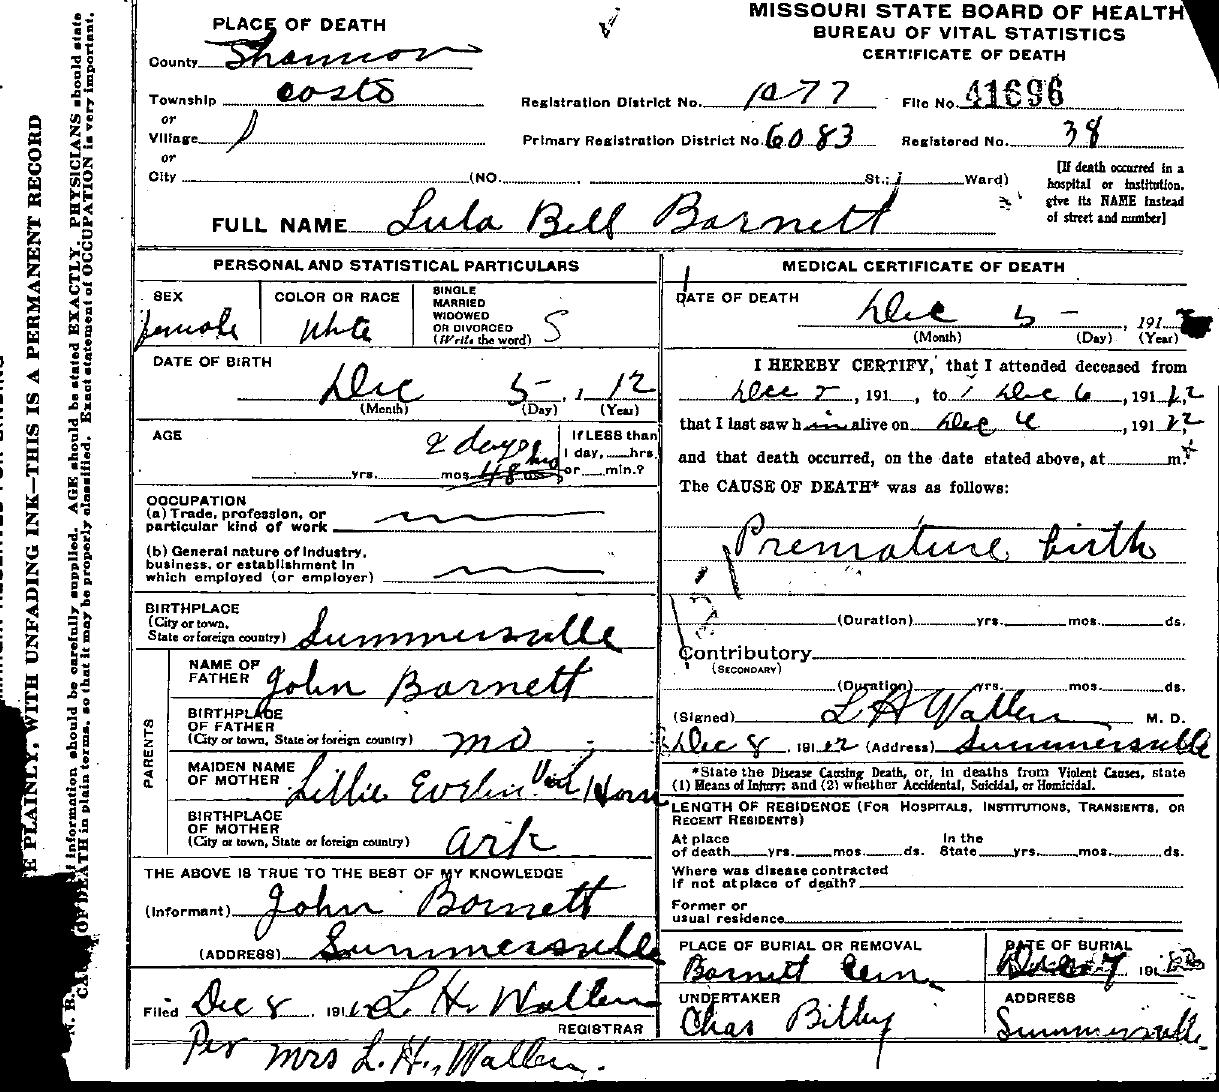 MISSOURI STATE BOARD OF HEALTH
BUREAU OF VITAL STATISTICS
CERTIFICATE OF DEATH
PLACE OF DEATH
County Shannon
Township
or
Village
or
City (NO. St.; Ward)
Registration District No. 1077 File No. 41696
Primary Registration District No. 6083 Registered No. 38
[If death occurred in a
hospital or institution,
give its NAME instead
of street and number]
FULL NAME Lula Bell Barnett
PERSONAL AND STATISTICAL PARTICULARS
SEX
female
COLOR OR RACE
White
SINGLE
MARRIED
WIDOWED
OR DIVORCED
(Write the word) S
DATE OF BIRTH
Dec 5-, 1 12
(Month) (Day) (Year)
AGE
2 days
yrs. mos.
If LESS than
1 day, hrs.
or min.?
OCCUPATION
(a) Trade, profession, or
particular kind of work
(b) General nature of industry,
business, or establishment in
which employed (or employer)
BIRTHPLACE
(City or town,
State or foreign country) Summersville
PARENTS
NAME OF
FATHER John Barnett
BIRTHPLACE
OF FATHER
(City or town, State or foreign country) Mo
MAIDEN NAME
OF MOTHER Lillie Evelin Van Horn
BIRTHPLACE
OF MOTHER
(City or town, State or foreign country) Ark
THE ABOVE IS TRUE TO THE BEST OF MY KNOWLEDGE
(Informant) John Barnett
(ADDRESS) Summersville
Filed Dec 8, 191 L. H. Wallen
REGISTRAR
Per Mrs L. H. Wallen.
MEDICAL CERTIFICATE OF DEATH
DATE OF DEATH
Dec 5-, 191
(Month) (Day) (Year)
I HEREBY CERTIFY, that I attended deceased from
Dec , 191 , to Dec 6, 191
that I last saw h alive on Dec , 191
and that death occurred, on the date stated above, at m.
The CAUSE OF DEATH* was as follows:
Premature birth
(Duration) yrs. mos. ds.
Contributory
(SECONDARY)
(Duration) yrs. mos. ds.
(Signed) L H Wallen M. D.
Dec 8, 191 (Address) Summersville
*State the Disease Causing Death, or, in deaths from Violent Causes, state
(1) Means of Injury; and (2) whether Accidental, Suicidal, or Homicidal.
LENGTH OF RESIDENCE (FOR HOSPITALS, INSTITUTIONS, TRANSIENTS, OR
RECENT RESIDENTS)
At place In the
of death yrs. mos. ds. State yrs. mos. ds.
Where was disease contracted
if not at place of death?
Former or
usual residence
PLACE OF BURIAL OR REMOVAL
Barnett Cem.
DATE OF BURIAL
191
UNDERTAKER
Chas Bilby
ADDRESS
Summersville
PLAINLY, WITH UNFADING INK—THIS IS A PERMANENT RECORD
information should be carefully supplied. AGE should be stated EXACTLY. PHYSICIANS should state
OF DEATH in plain terms, so that it may be properly classified. Exact statement of OCCUPATION is very important.